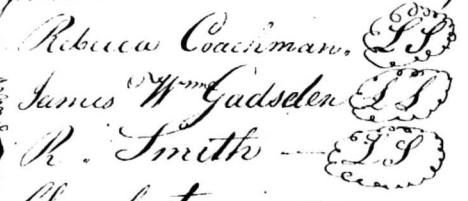 Rebecca Coachman. LS
James Wm Gadsden LS
R. Smith — LS